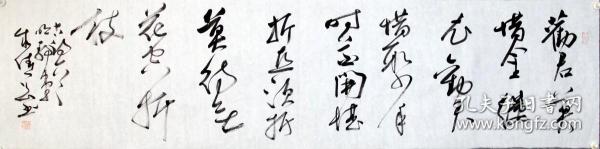 勸君莫
惜金縷
衣勸君
惜取少年
時花開堪
折直須折
莫待無
花空折
枝
孔夫子旧书网
kongfz.com